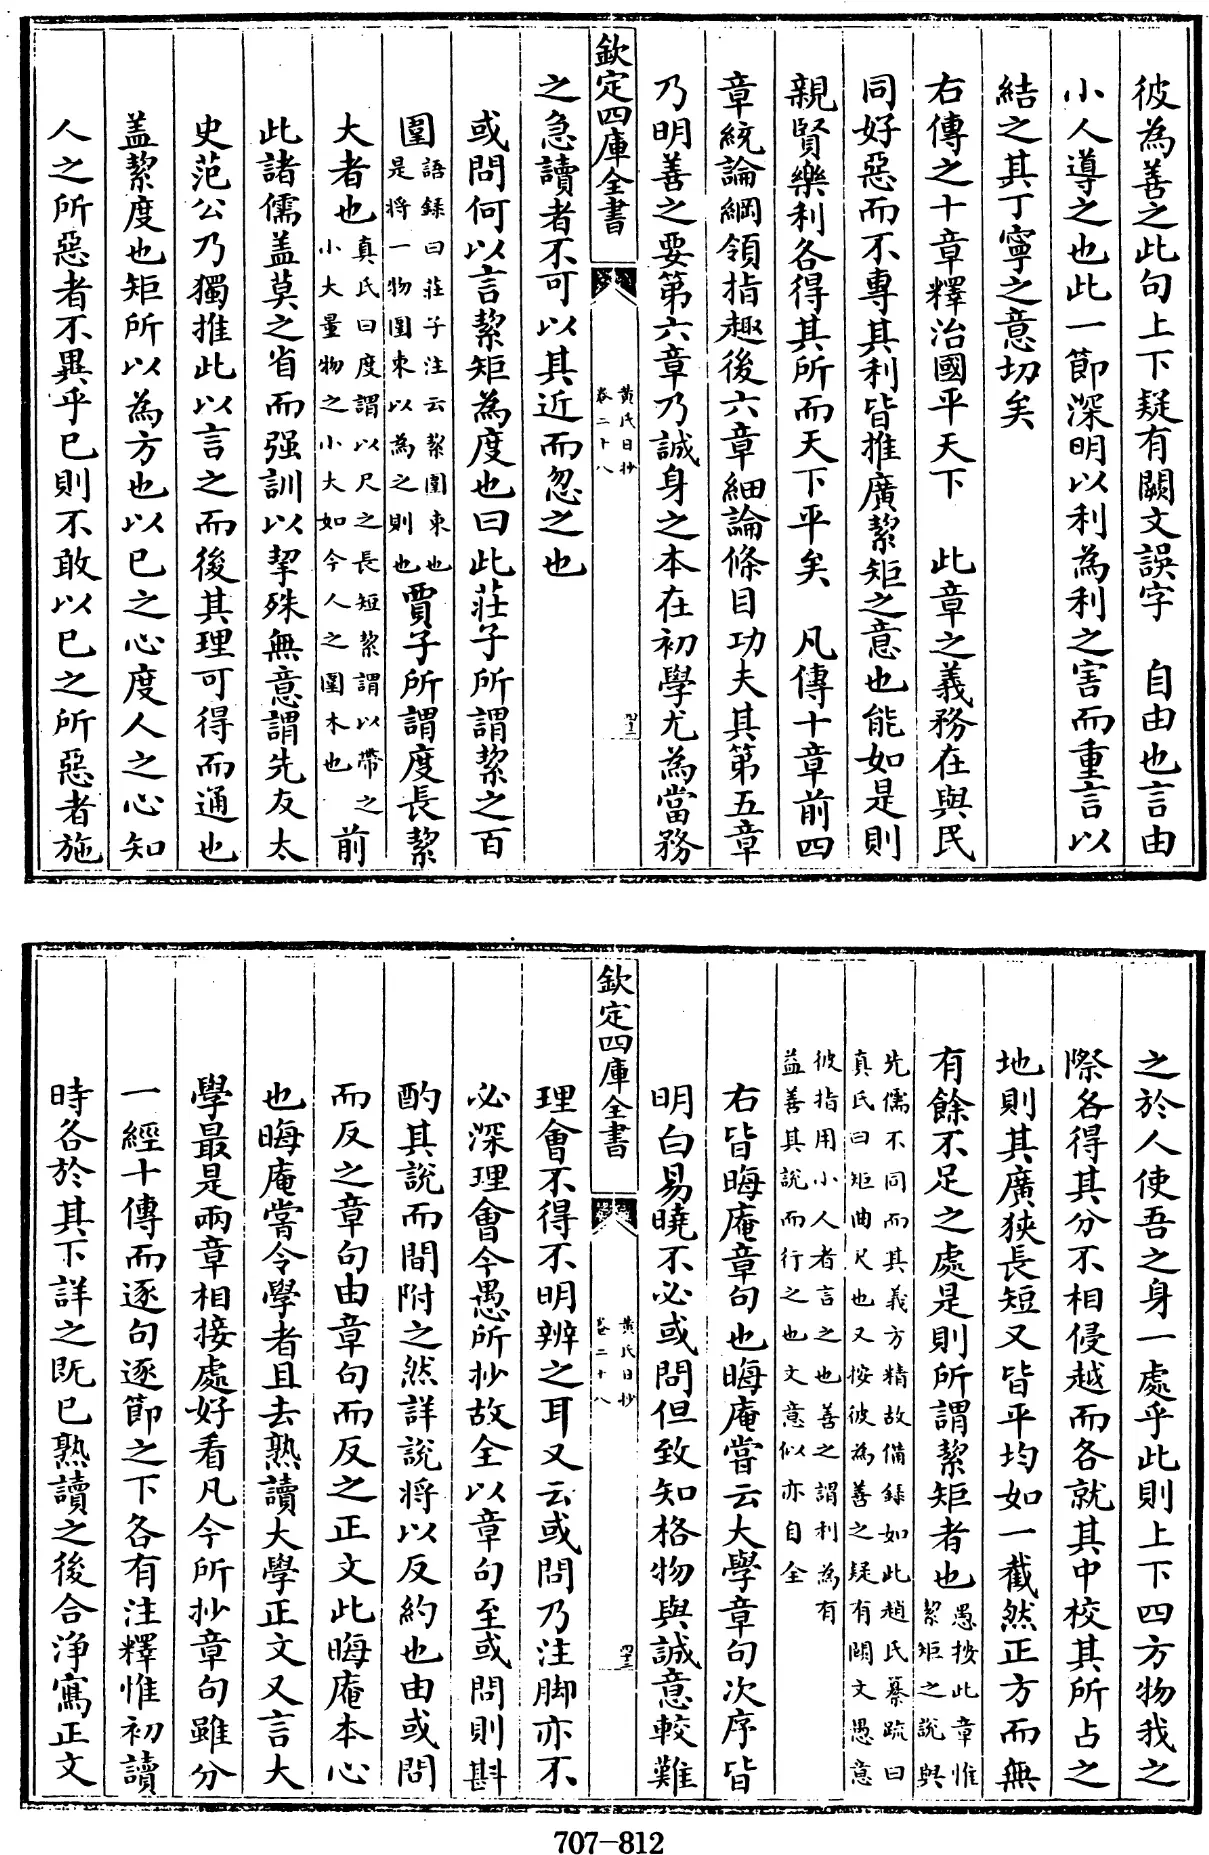 彼為善之此句上下疑有闕文誤字　自由也言由
小人導之也此一節深明以利為利之害而重言以
結之其丁寧之意切矣
右傳之十章釋治國平天下　此章之義務在與民
同好惡而不專其利皆推廣絜矩之意也能如是則
親賢樂利各得其所而天下平矣　凡傳十章前四
章統論綱領指趣後六章細論條目功夫其第五章
乃明善之要第六章乃誠身之本在初學尤為當務
欽定四庫全書
黄氏日抄
卷二十八
之急讀者不可以其近而忽之也
或問何以言絜矩為度也曰此莊子所謂絜之百
圍語錄曰莊子注云絜圍束也是將一物圍束以為之則也賈子所謂度長絜
大者也真氏曰度謂以尺之長短絜謂以帶之小大量物之小大如今人之圍木也前
此諸儒盖莫之省而强訓以挈殊無意謂先友太
史范公乃獨推此以言之而後其理可得而通也
盖絜度也矩所以為方也以已之心度人之心知
人之所惡者不異乎已則不敢以已之所惡者施
之於人使吾之身一處乎此則上下四方物我之
際各得其分不相侵越而各就其中校其所占之
地則其廣狹長短又皆平均如一截然正方而無
有餘不足之處是則所謂絜矩者也愚按此章惟絜矩之說與
先儒不同而其義方精故備錄如此趙氏纂疏曰
真氏曰矩曲尺也又按彼為善之疑有闕文愚意
彼指用小人者言之也善之謂利為有
益善其說而行之也文意似亦自全
右皆晦庵章句也晦庵嘗云大學章句次序皆
明白易曉不必或問但致知格物與誠意較難
欽定四庫全書
黄氏日抄
卷二十八
理會不得不明辨之耳又云或問乃注脚亦不
必深理會今愚所抄故全以章句至或問則斟
酌其說而間附之然詳說將以反約也由或問
而反之章句由章句而反之正文此晦庵本心
也晦庵嘗令學者且去熟讀大學正文又言大
學最是兩章相接處好看凡今所抄章句雖分
一經十傳而逐句逐節之下各有注釋惟初讀
時各於其下詳之既已熟讀之後合淨寫正文
707-812